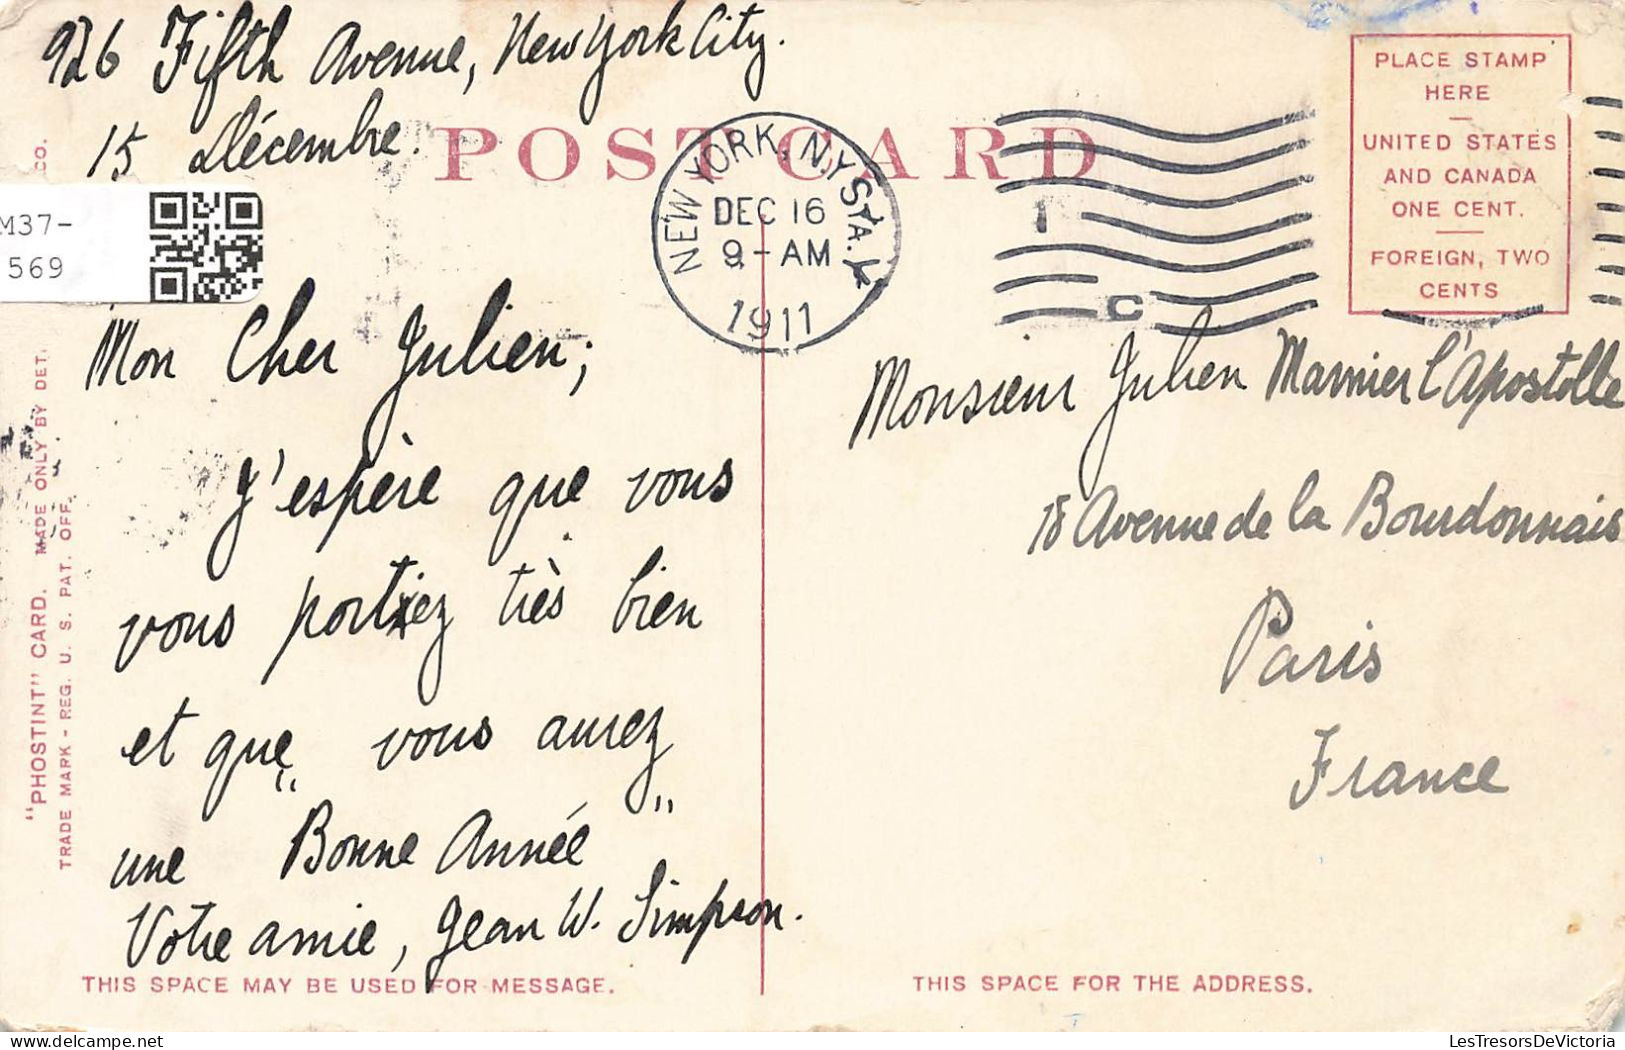 926 Fifth Avenue, New York City.
15 Décembre.
POST CARD
NEW YORK, N.Y. STA. K
DEC 16
9-AM
1911
C
PLACE STAMP
HERE
UNITED STATES
AND CANADA
ONE CENT.
FOREIGN, TWO
CENTS
M37-
569
Mon Cher Julien;
J'espère que vous
vous portez très bien
et que vous aurez
une "Bonne Année"
Votre amie, Jean W. Simpson.
Monsieur Julien Marnier l'Apostolle
18 Avenue de la Bourdonnais
Paris
France
"PHOSTINT" CARD. MADE ONLY BY DET. CO.
TRADE MARK - REG. U. S. PAT. OFF.
THIS SPACE MAY BE USED FOR MESSAGE.
THIS SPACE FOR THE ADDRESS.
LesTresorsDeVictoria